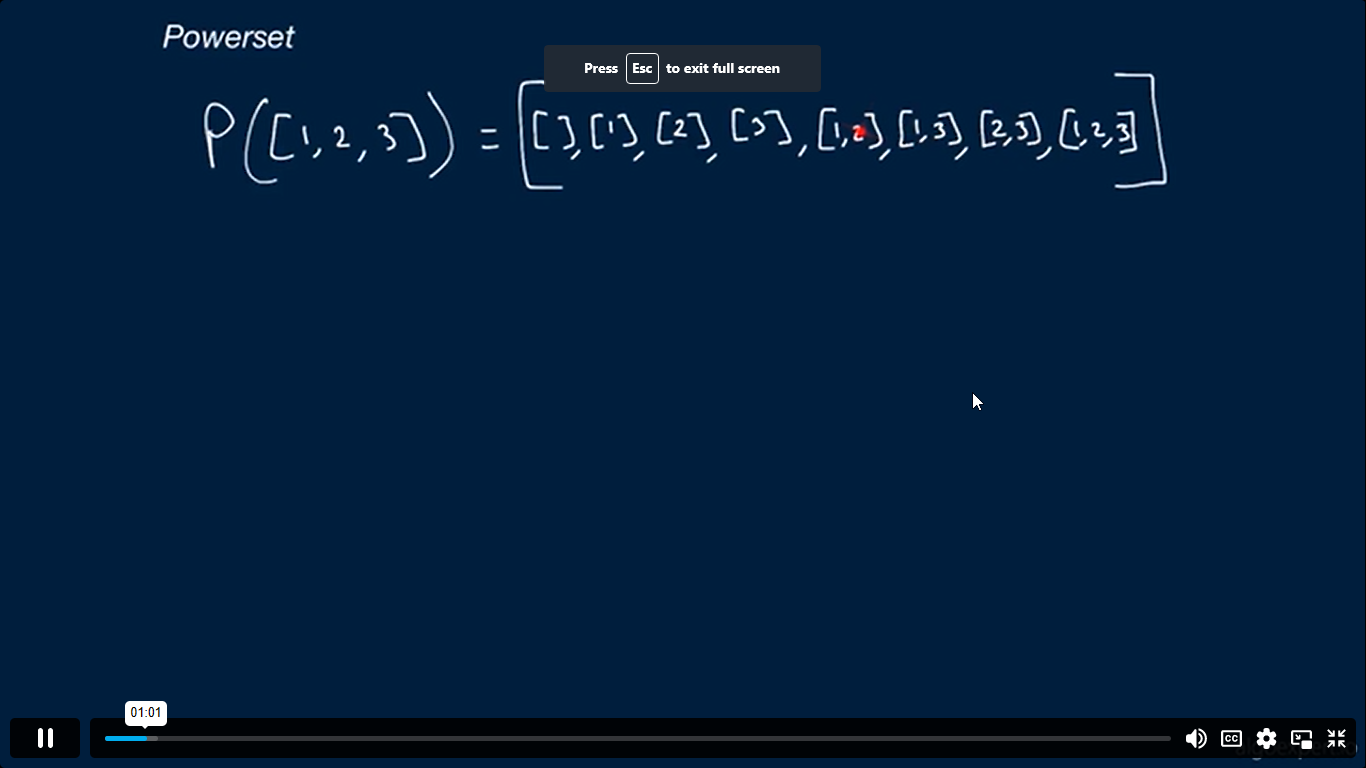 Powerset
Press Esc to exit full screen
P([1,2,3]) = [[],[1],[2],[3],[1,2],[1,3],[2,3],[1,2,3]]
01:01
CC